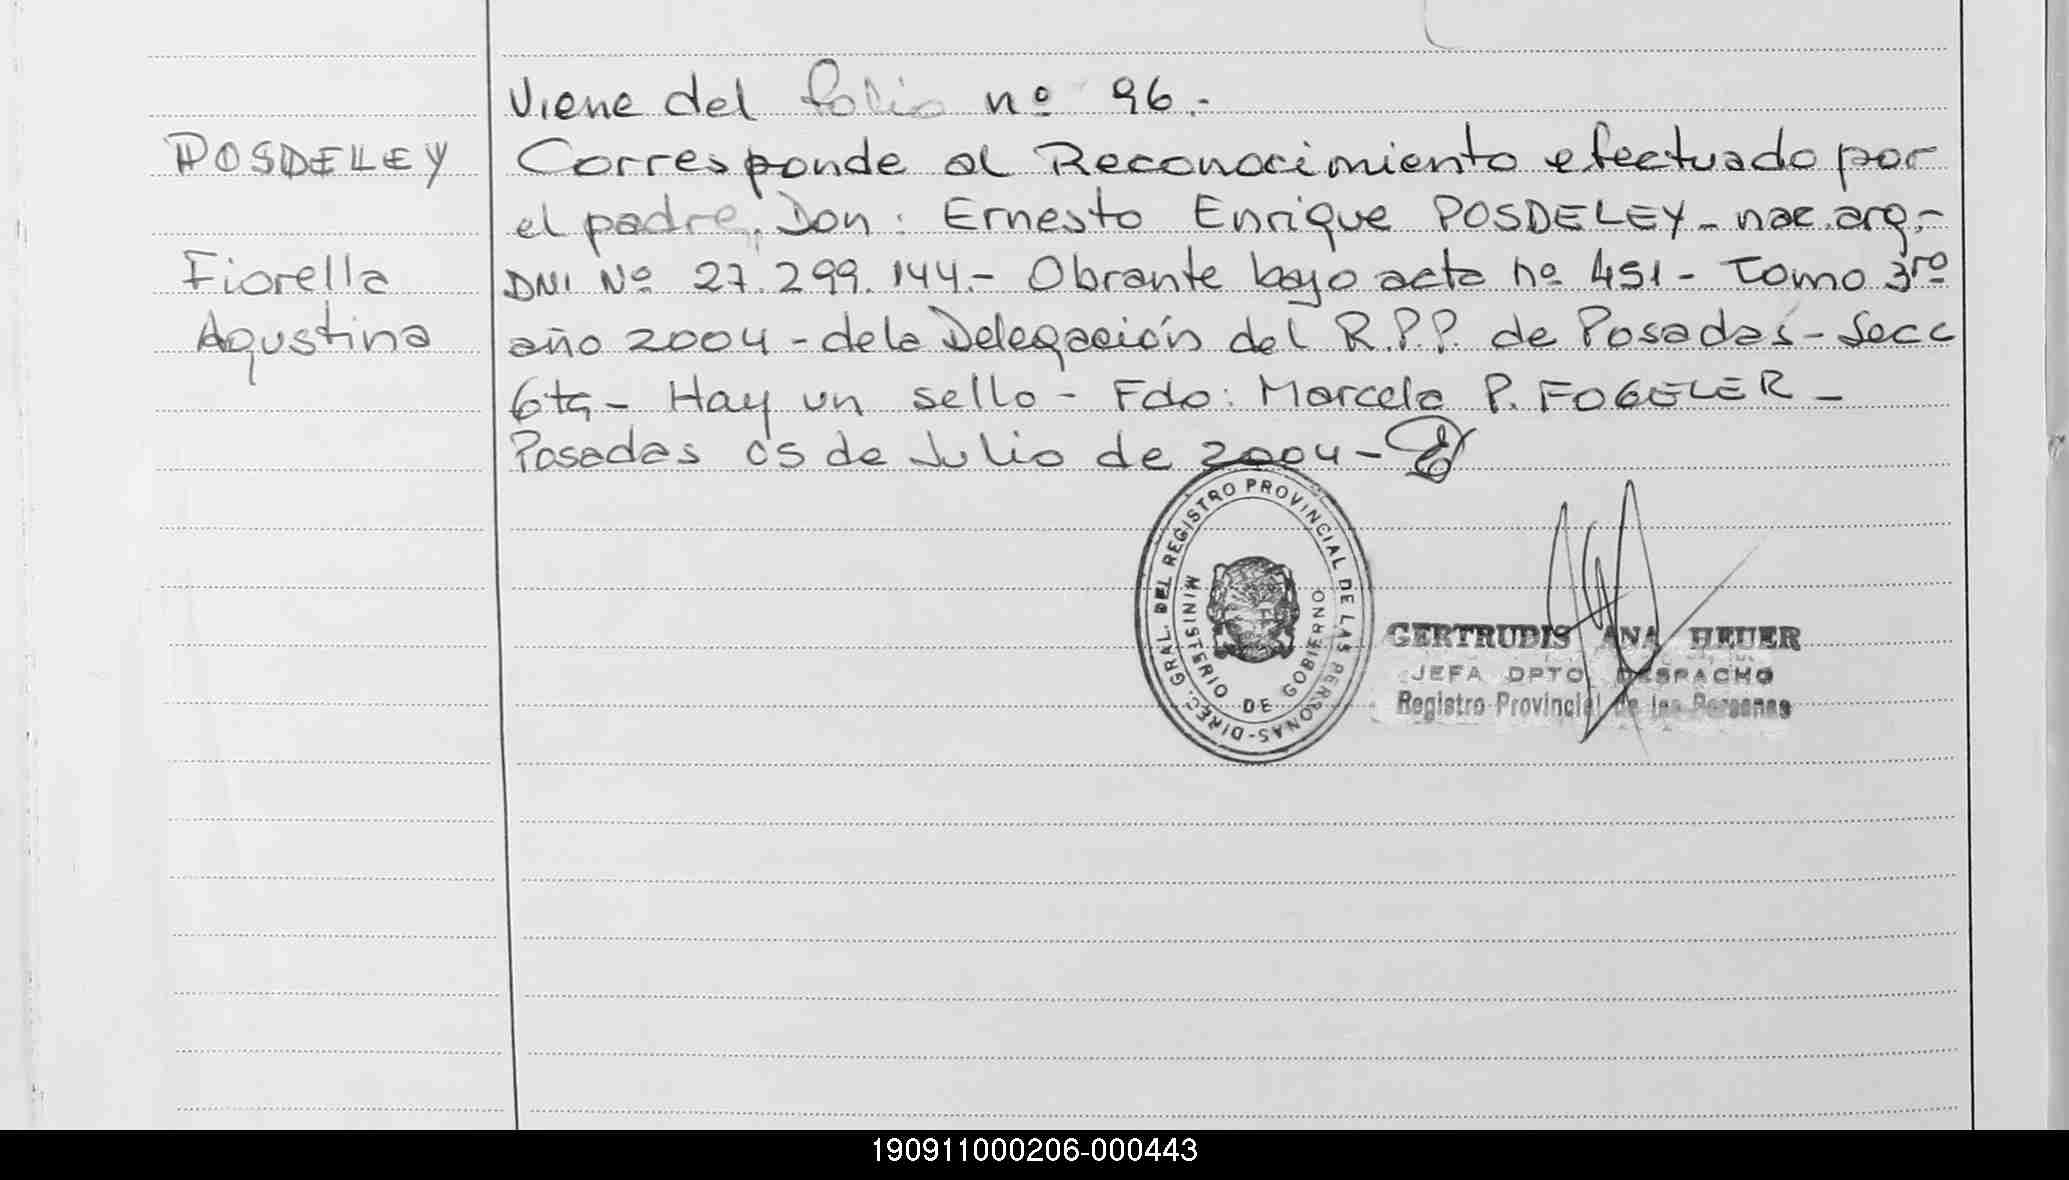 Viene del folio nº 96.
POSDELEY
Corresponde al Reconocimiento efectuado por
el padre, Don: Ernesto Enrique POSDELEY - nac. arg.-
Fiorella
DNI Nº 27.299.144.- Obrante bajo acta nº 451 - Tomo 3ro
Agustina
año 2004 - de la Delegación del R.P.P. de Posadas - Secc
6ta - Hay un sello - Fdo: Marcela P. FOGELER -
Posadas 05 de Julio de 2004 -
DIREC. GRAL. DEL REGISTRO PROVINCIAL DE LAS PERSONAS-
MINISTERIO DE GOBIERNO
GERTRUDIS ANA HEUER
JEFA DPTO DESPACHO
Registro Provincial de las Personas
190911000206-000443